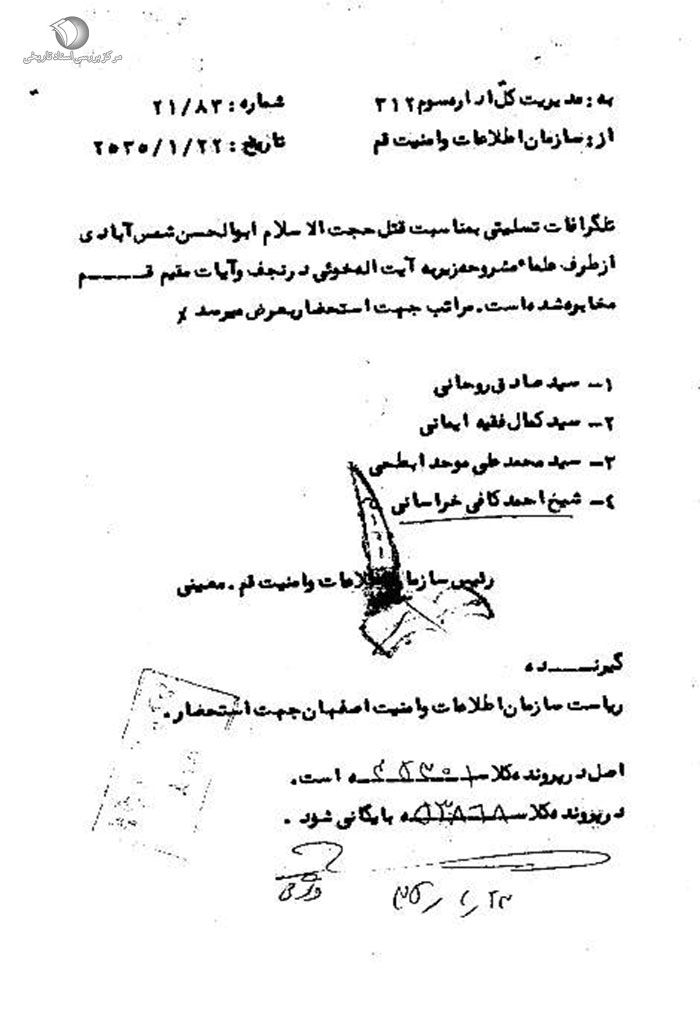 مرکز بررسی اسناد تاریخی
به: مدیریت کل اداره سوم ۳۱۲
شماره: ۲۱/۸۳
از: سازمان اطلاعات و امنیت قم
تاریخ: ۲۵۳۵/۱/۲۲
تلگرافات تسلیتی بمناسبت قتل حجت الاسلام ابوالحسن شمس آبادی
از طرف علماء مشروحه زیر به آیت اله خوئی در نجف و آیات مقیم قـــــم
مخابره شده است. مراتب جهت استحضار بعرض میرسد
۱- سید صادق روحانی
۲- سید کمال فقیه ایمانی
۳- سید محمد علی موحد ابطحی
۴- شیخ احمد کافی خراسانی
رئیس سازمان اطلاعات و امنیت قم. معینی
گیرنـــــده
ریاست سازمان اطلاعات و امنیت اصفهان جهت استحضار.
اصل در پرونده کلاسه است.
در پرونده کلاسه بایگانی شود.
۳۵/۱/۲۳